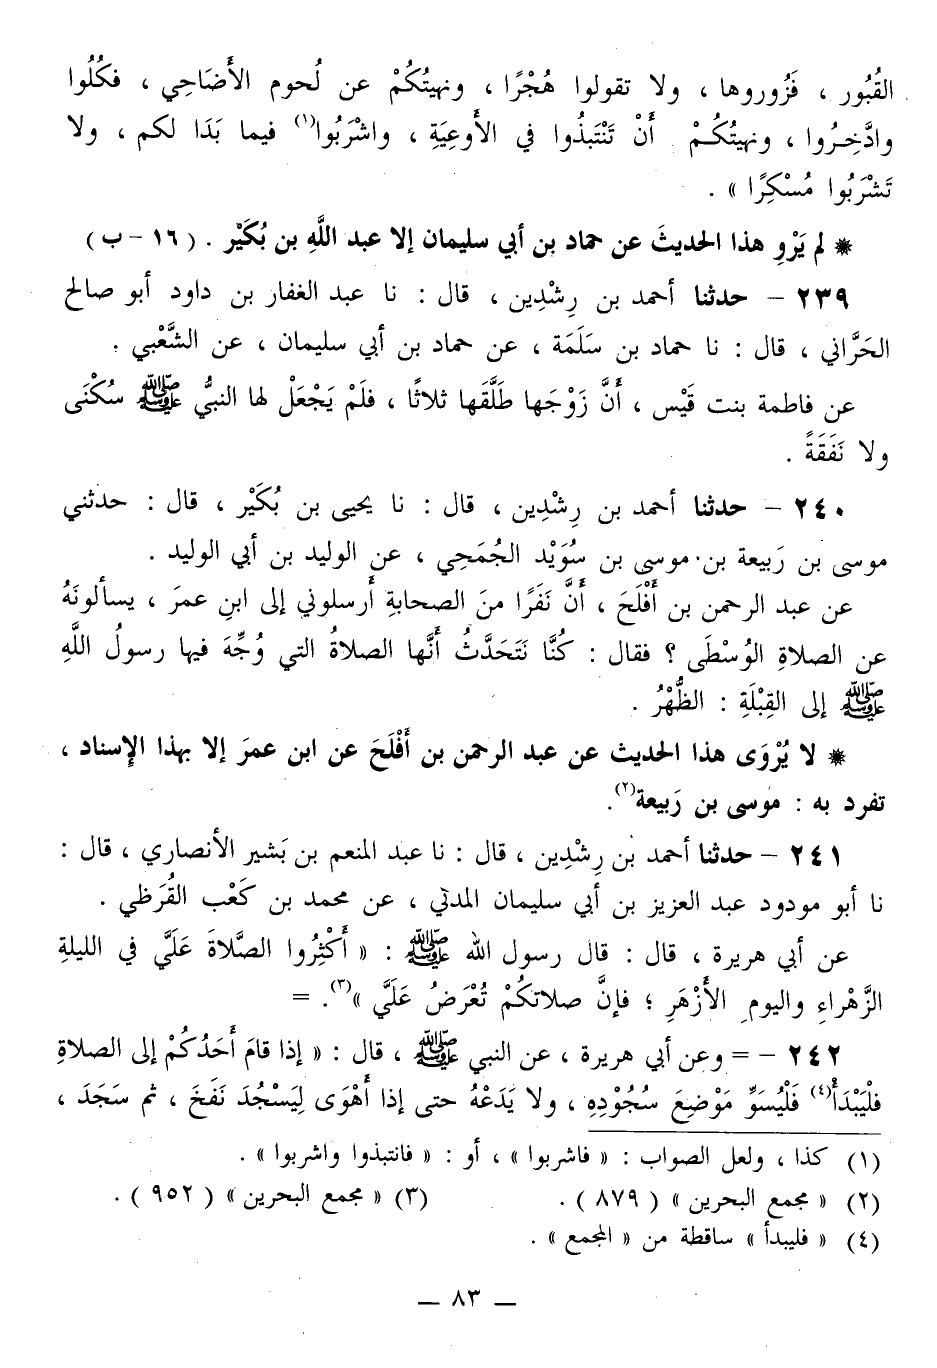 القُبُور ، فَزُوروها ، ولا تقولوا هُجْرًا ، ونهيتُكُمْ عن لُحوم الأَضَاحِي ، فكُلُوا
وادَّخِـرُوا ، ونهيتُكُـمْ أَنْ تَنْتَبذُوا في الأَوعِيَةِ ، واشْرَبُوا(١) فيما بَدَا لكم ، ولا
تَشْرَبُوا مُسْكِرًا » .
* لم يَرْوِ هذا الحديثَ عن حماد بن أبي سليمان إلا عبد اللَّهِ بن بُكَيْر . ( ١٦ - ب )
٢٣٩ - حدثنا أحمد بن رِشْدِين ، قال : نا عبد الغفار بن داود أبو صالح
الحَرَّاني ، قال : نا حماد بن سَلَمَة ، عن حماد بن أبي سليمان ، عن الشَّعْبي .
عن فاطمة بنت قَيْس ، أَنَّ زَوْجَها طَلَّقَها ثلاثًا ، فلَمْ يَجْعَلْ لها النبيُّ ﷺ سُكْنَى
ولا نَفَقَةً .
٢٤٠ - حدثنا أحمد بن رِشْدِين ، قال : نا يحيى بن بُكَيْر ، قال : حدثني
موسى بن رَبيعة بن موسى بن سُوَيْد الجُمَحِي ، عن الوليد بن أبي الوليد .
عن عبد الرحمن بن أَفْلَحَ ، أَنَّ نَفَرًا منَ الصحابةِ أَرسلوني إلى ابنِ عمرَ ، يسألونَهُ
عن الصلاةِ الوُسْطَى ؟ فقال : كُنَّا نَتَحَدَّثُ أَنَّها الصلاةُ التي وُجِّهَ فيها رسولُ اللَّهِ
ﷺ إلى القِبْلَةِ : الظُّهْرُ .
* لا يُرْوَى هذا الحديث عن عبد الرحمن بن أَفْلَحَ عن ابن عمرَ إلا بهذا الإسناد ،
تفرد به : موسى بن رَبيعة(٢).
٢٤١ - حدثنا أحمد بن رِشْدِين ، قال : نا عبد المنعم بن بَشير الأنصاري ، قال :
نا أبو مودود عبد العزيز بن أبي سليمان المدني ، عن محمد بن كَعْب القُرَظي .
عن أبي هريرة ، قال : قال رسول الله ﷺ : « أَكْثِرُوا الصَّلاةَ عَلَيَّ في الليلةِ
الزَّهْراءِ واليومِ الأَزْهَرِ ؛ فإنَّ صلاتكُمْ تُعْرَضُ عَلَيَّ »(٣). =
٢٤٢ - = وعن أبي هريرة ، عن النبي ﷺ ، قال : « إذا قامَ أَحَدُكُمْ إلى الصلاةِ
فلْيَبْدَأْ(٤) فَلْيُسَوِّ مَوْضِعَ سُجُودِهِ ، ولا يَدَعْهُ حتى إذا أَهْوَى لِيَسْجُدَ نَفَخَ ، ثم سَجَدَ ،
(١) كذا ، ولعل الصواب : « فاشربوا » ، أو : « فانتبذوا واشربوا » .
(٢) « مجمع البحرين » ( ٨٧٩ ) . (٣) « مجمع البحرين » ( ٩٥٢ ) .
(٤) « فليبدأ » ساقطة من « المجمع » .
— ٨٣ —